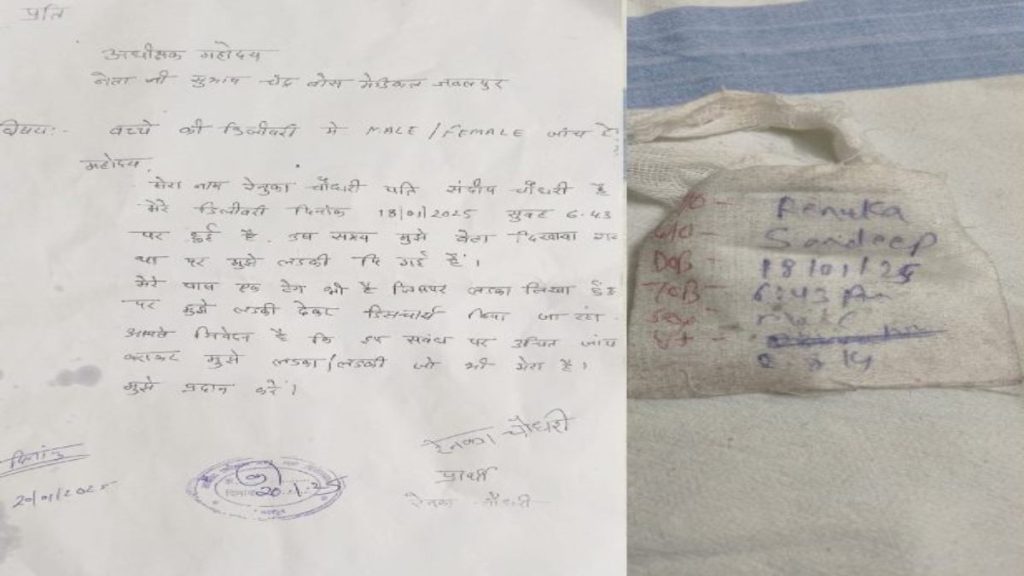 प्रति
अधीक्षक महोदय
नेता जी सुभाष चंद्र बोस मेडिकल जबलपुर
विषय:- बच्चे की डिलीवरी मे MALE/FEMALE जांच
महोदय,
मेरा नाम रेनुका चौधरी पति संदीप चौधरी है
मेरे डिलीवरी दिनांक 18/01/2025 सुबह 6.43
पर हुई है. उस समय मुझे बेटा दिखाया
था पर मुझे लडकी दि गई है।
मेरे पास एक टेग भी है जिसपर लडका लिखा
पर मुझे लडकी देकर डिसचार्ज किया जा
आपसे निवेदन है कि इस संबंध पर उचित जांच
कराकर मुझे लडका/लडकी जो भी मेरा है।
मुझे प्रदान करें।
रेनुका चौधरी
प्रार्थी
रेनुका चौधरी
दिनांक
20/01/2025
20.1.25
B/O - Renuka
W/O - Sandeep
DOB - 18/01/25
TOB - 6:43 Am
Sex - male
wt -